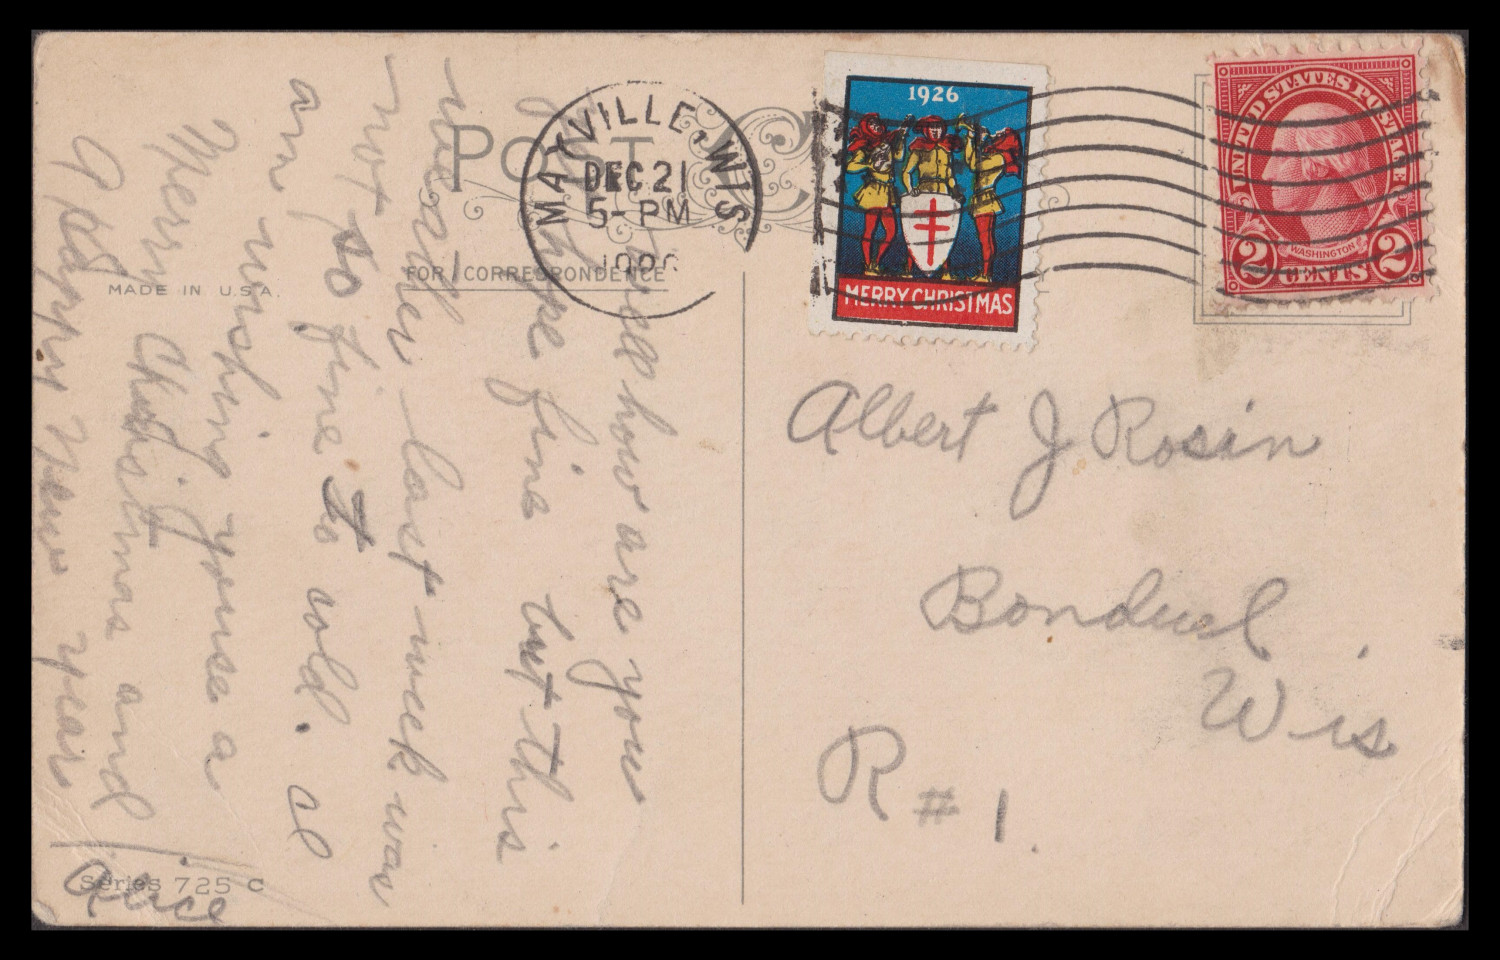 POST
FOR CORRESPONDENCE
MADE IN U.S.A.
Series 725 C
MAYVILLE, WIS
DEC 21
5-PM
1926
1926
MERRY CHRISTMAS
UNITED STATES POSTAGE
WASHINGTON
2 CENTS 2
Albert J Rosin
Bonduel
Wis
R #1.
well how are you
I hope fine but this
weather last week was
not so fine to cold. I
am wishing youse a
Merry Christmas and
A Happy New year
Alice